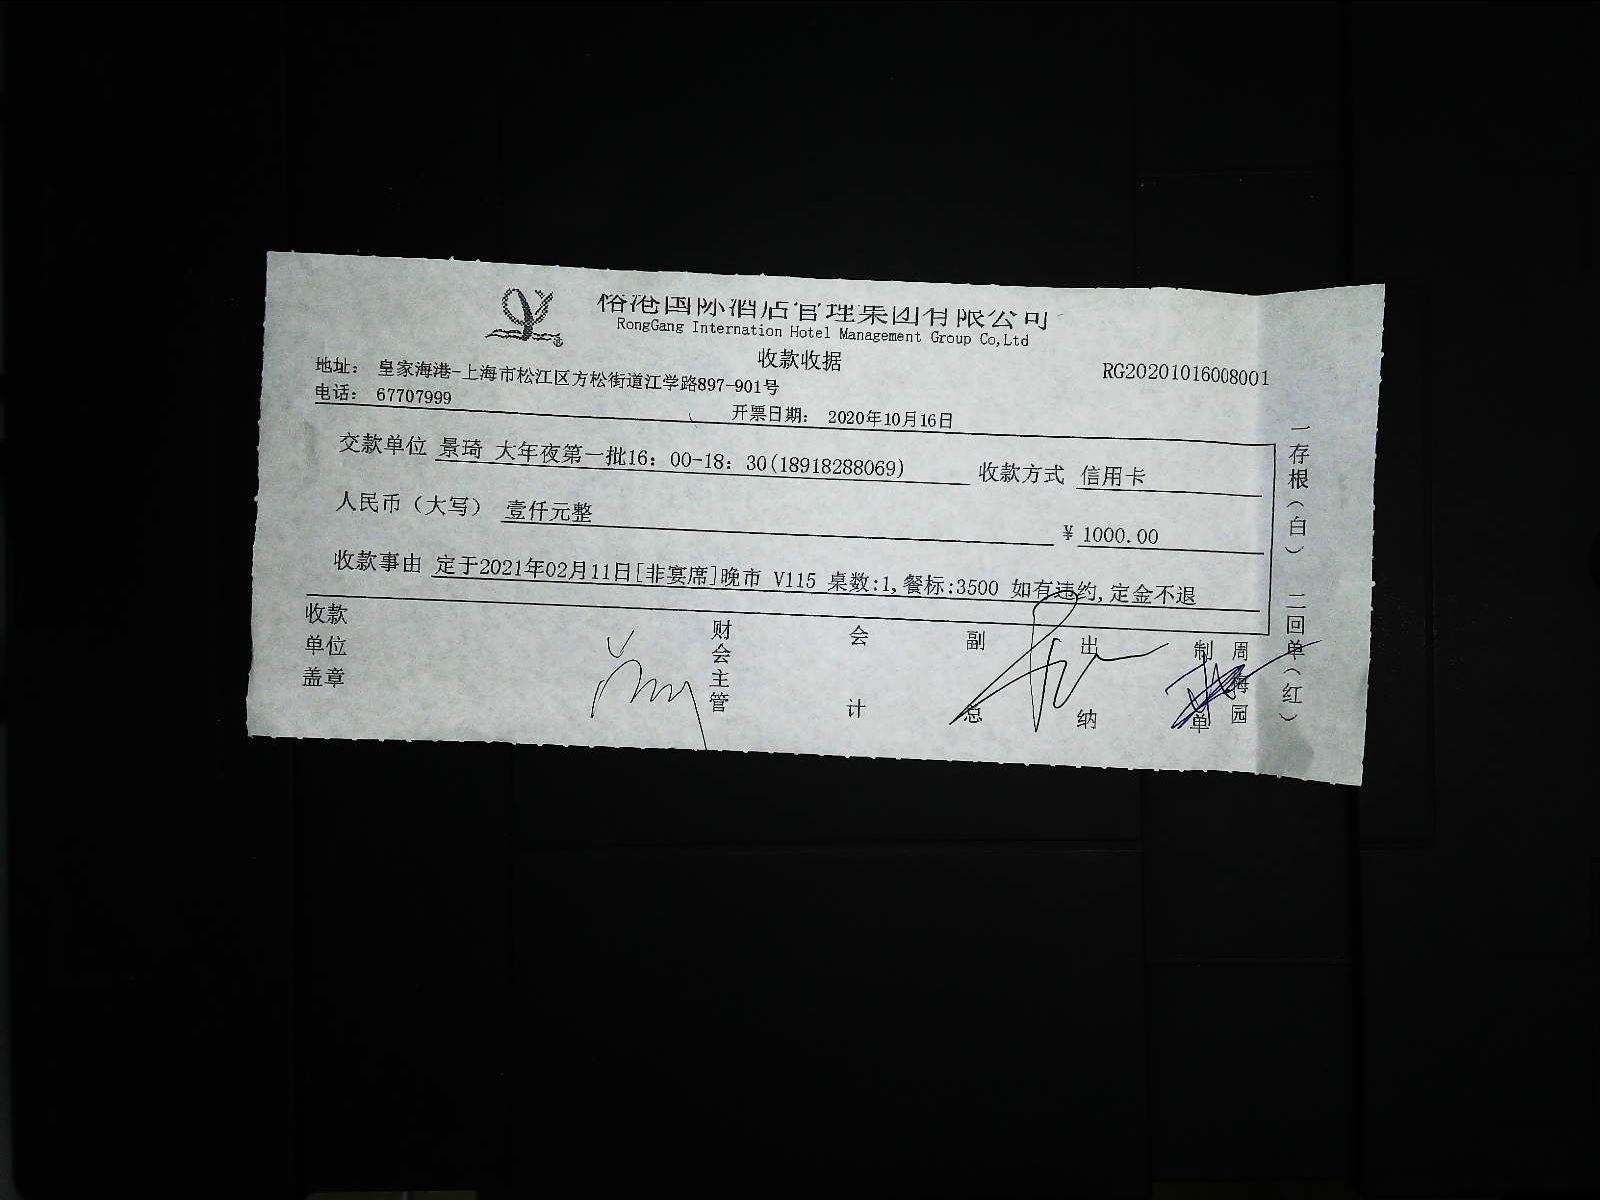 榕港国际酒店管理集团有限公司
RongGang Internation Hotel Management Group Co,Ltd
收款收据
RG20201016008001
地址： 皇家海港-上海市松江区方松街道江学路897-901号
电话： 67707999
开票日期： 2020年10月16日
交款单位 景琦 大年夜第一批16：00-18：30(18918288069) 收款方式 信用卡
人民币（大写） 壹仟元整 ¥ 1000.00
收款事由 定于2021年02月11日[非宴席]晚市 V115 桌数:1,餐标:3500 如有违约,定金不退
收款单位盖章
财会主管
会计
副总
出纳
制单
周海园
一存根（白） 二回单（红）